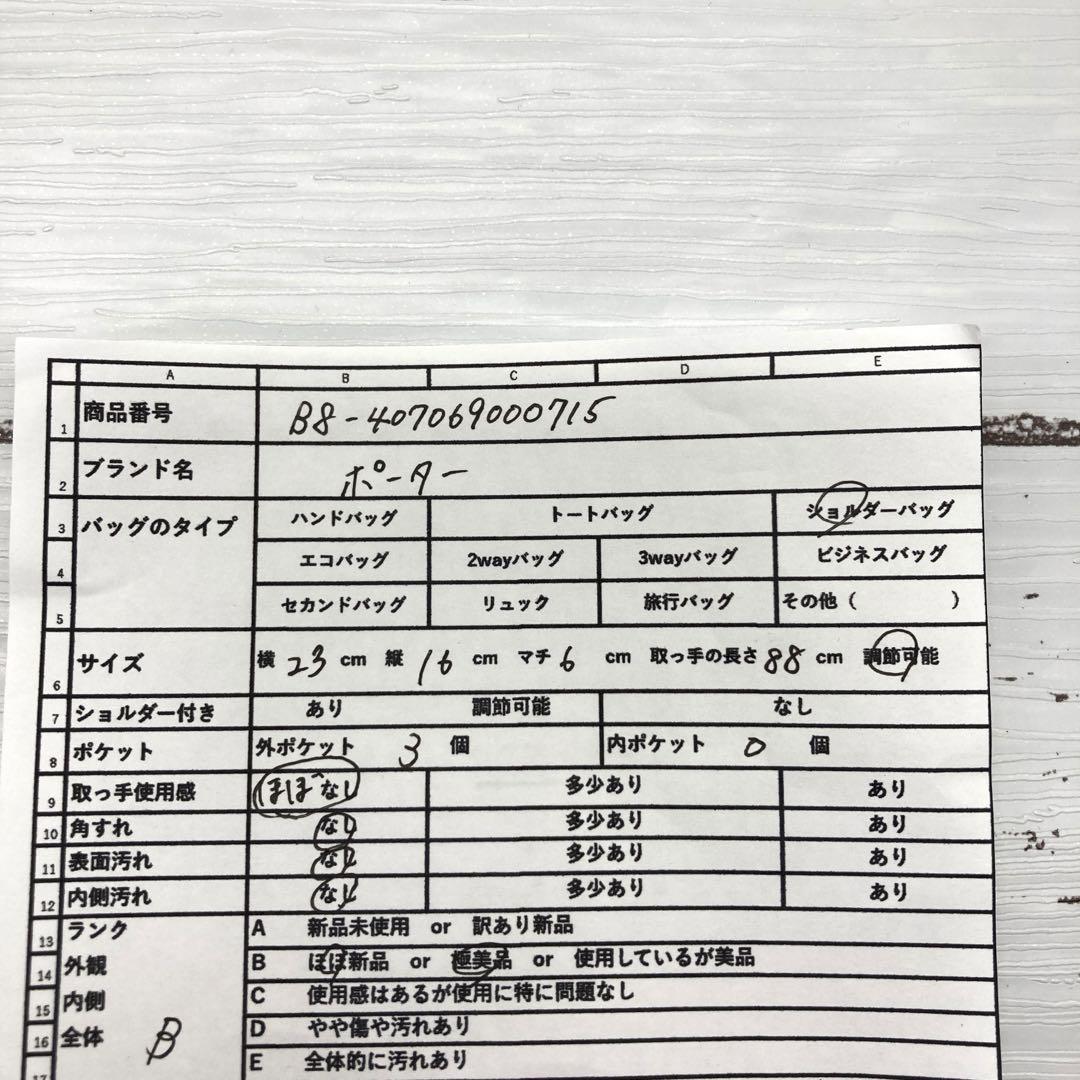 A B C D E
1 商品番号 B8-407069000715
2 ブランド名 ポーター
3 バッグのタイプ ハンドバッグ トートバッグ ショルダーバッグ
4 エコバッグ 2wayバッグ 3wayバッグ ビジネスバッグ
5 セカンドバッグ リュック 旅行バッグ その他（ ）
6 サイズ 横 23 cm 縦 16 cm マチ 6 cm 取っ手の長さ 88 cm 調節可能
7 ショルダー付き あり 調節可能 なし
8 ポケット 外ポケット 3 個 内ポケット 0 個
9 取っ手使用感 ほぼなし 多少あり あり
10 角すれ なし 多少あり あり
11 表面汚れ なし 多少あり あり
12 内側汚れ なし 多少あり あり
13 ランク A 新品未使用 or 訳あり新品
14 外観 B ほぼ新品 or 極美品 or 使用しているが美品
15 内側 C 使用感はあるが使用に特に問題なし
16 全体 B D やや傷や汚れあり
17 E 全体的に汚れあり